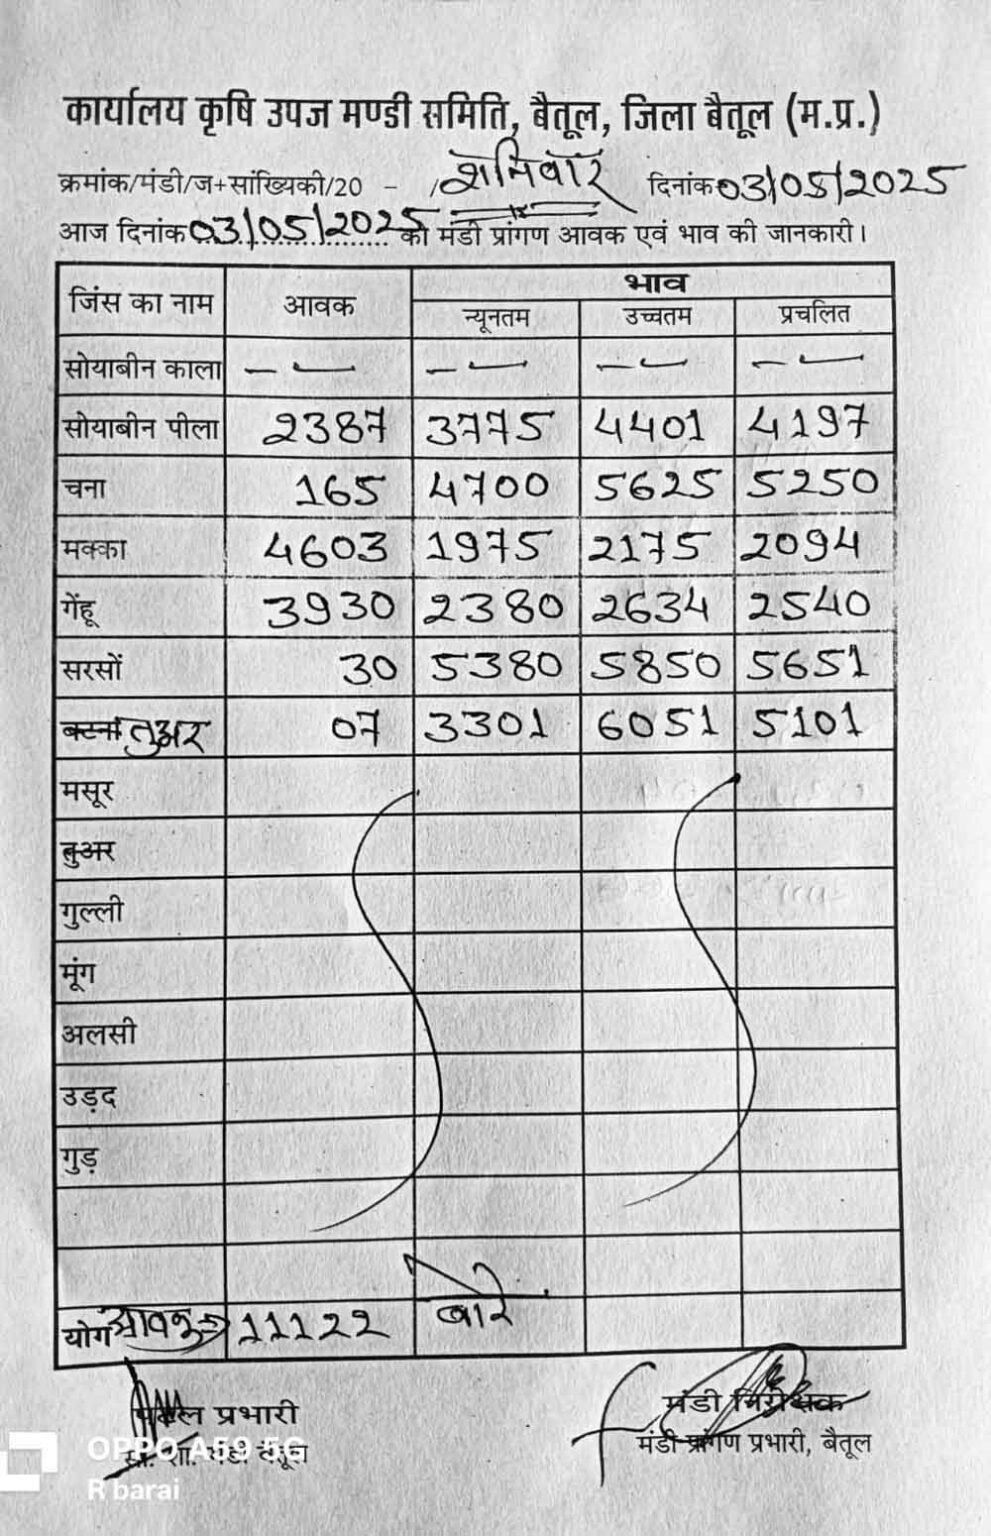 कार्यालय कृषि उपज मण्डी समिति, बैतूल, जिला बैतूल (म.प्र.)
क्रमांक/मंडी/ज+सांख्यिकी/20 - / शनिवार दिनांक 03/05/2025
आज दिनांक 03/05/2025 को मंडी प्रांगण आवक एवं भाव की जानकारी।
जिंस का नाम आवक भाव
न्यूनतम उच्चतम प्रचलित
सोयाबीन काला - — - — - — - —
सोयाबीन पीला 2387 3775 4401 4197
चना 165 4700 5625 5250
मक्का 4603 1975 2175 2094
गेंहू 3930 2380 2634 2540
सरसों 30 5380 5850 5651
तुअर 07 3301 6051 5101
मसूर
तुअर
गुल्ली
मूंग
अलसी
उड़द
गुड़
योग आवक → 11122 बोरे
प्रभारी मंडी निरीक्षक
मंडी बैतूल मंडी प्रांगण प्रभारी, बैतूल
OPPO A59 5G
R barai